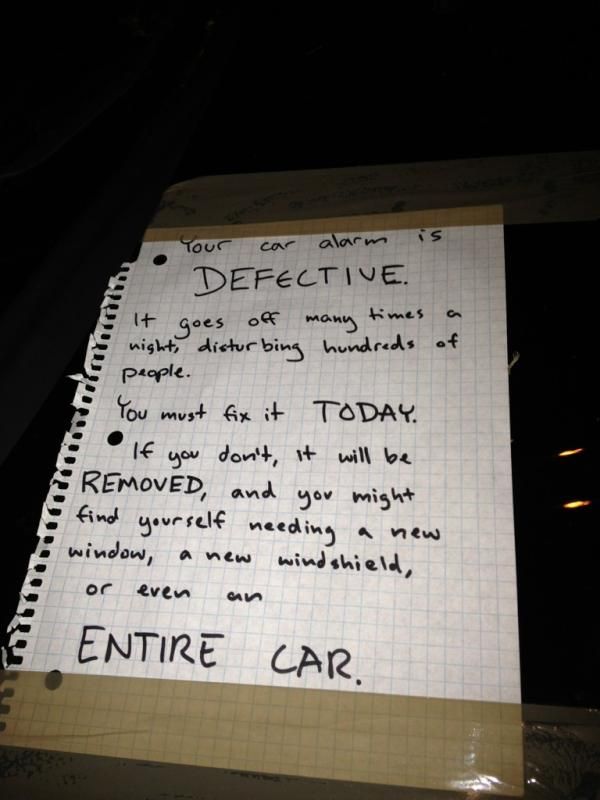 Your car alarm is
DEFECTIVE.
It goes off many times a
night, disturbing hundreds of
people.
You must fix it TODAY.
If you don't, it will be
REMOVED, and you might
find yourself needing a new
window, a new windshield,
or even an
ENTIRE CAR.